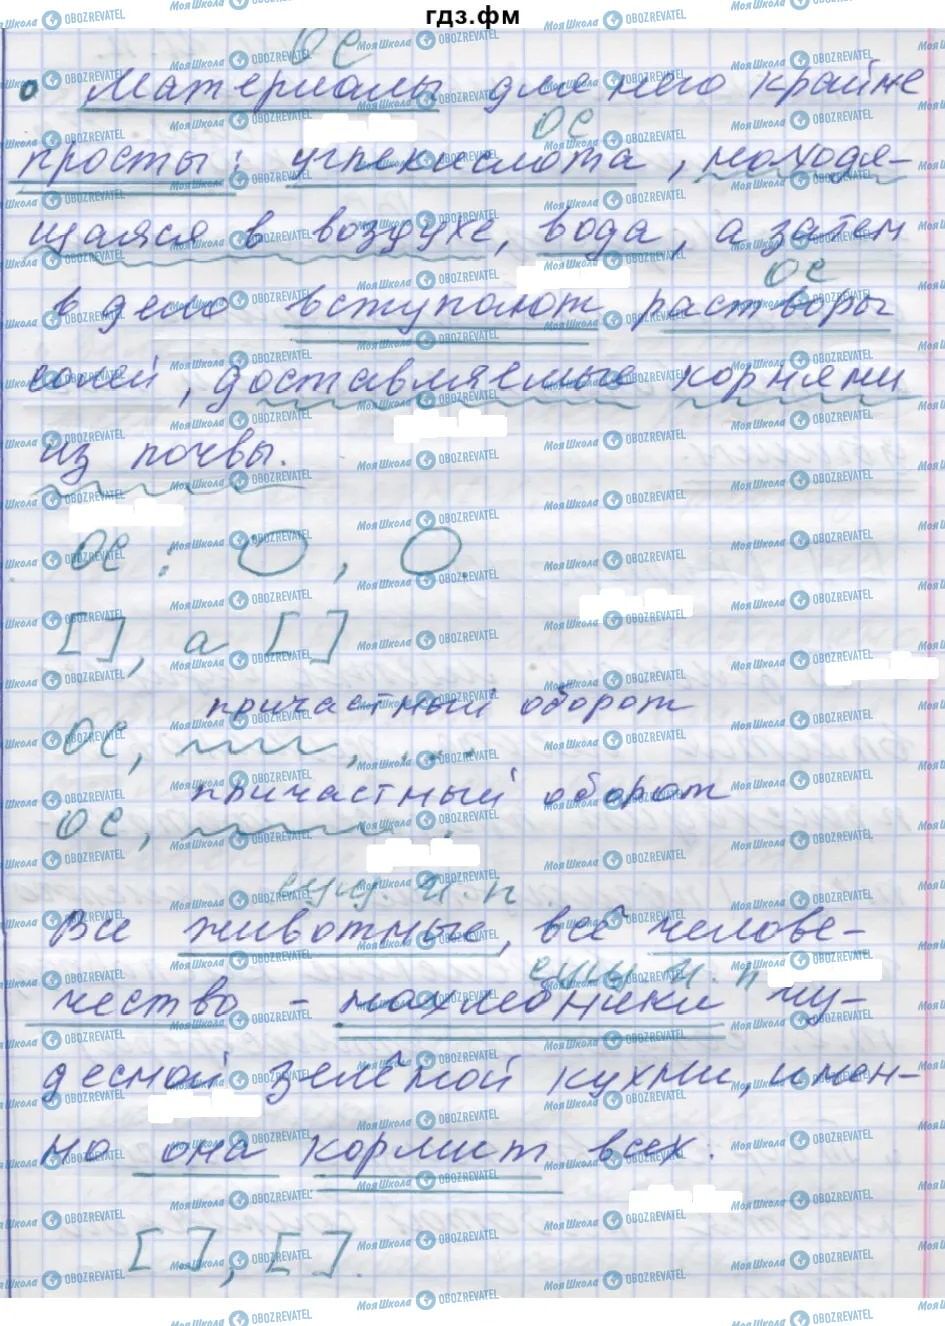 гдз.фм
ОС
Материалы для него крайне
ОС
просты: углекислота, находя-
щаяся в воздухе, вода, а затем
ОС
в дело вступают растворы
солей, доставляемые корнями
из почвы.
ОС: О, О.
[ ], а [ ]
причастный оборот
ОС, , ...
причастный оборот
ОС, .
сущ. И. п.
Все животные, всё челове-
сущ. И. п
чество – нахлебники чу-
десной зелёной кухни, имен-
но она кормит всех.
[ ], [ ].
МояШкола OBOZREVATEL